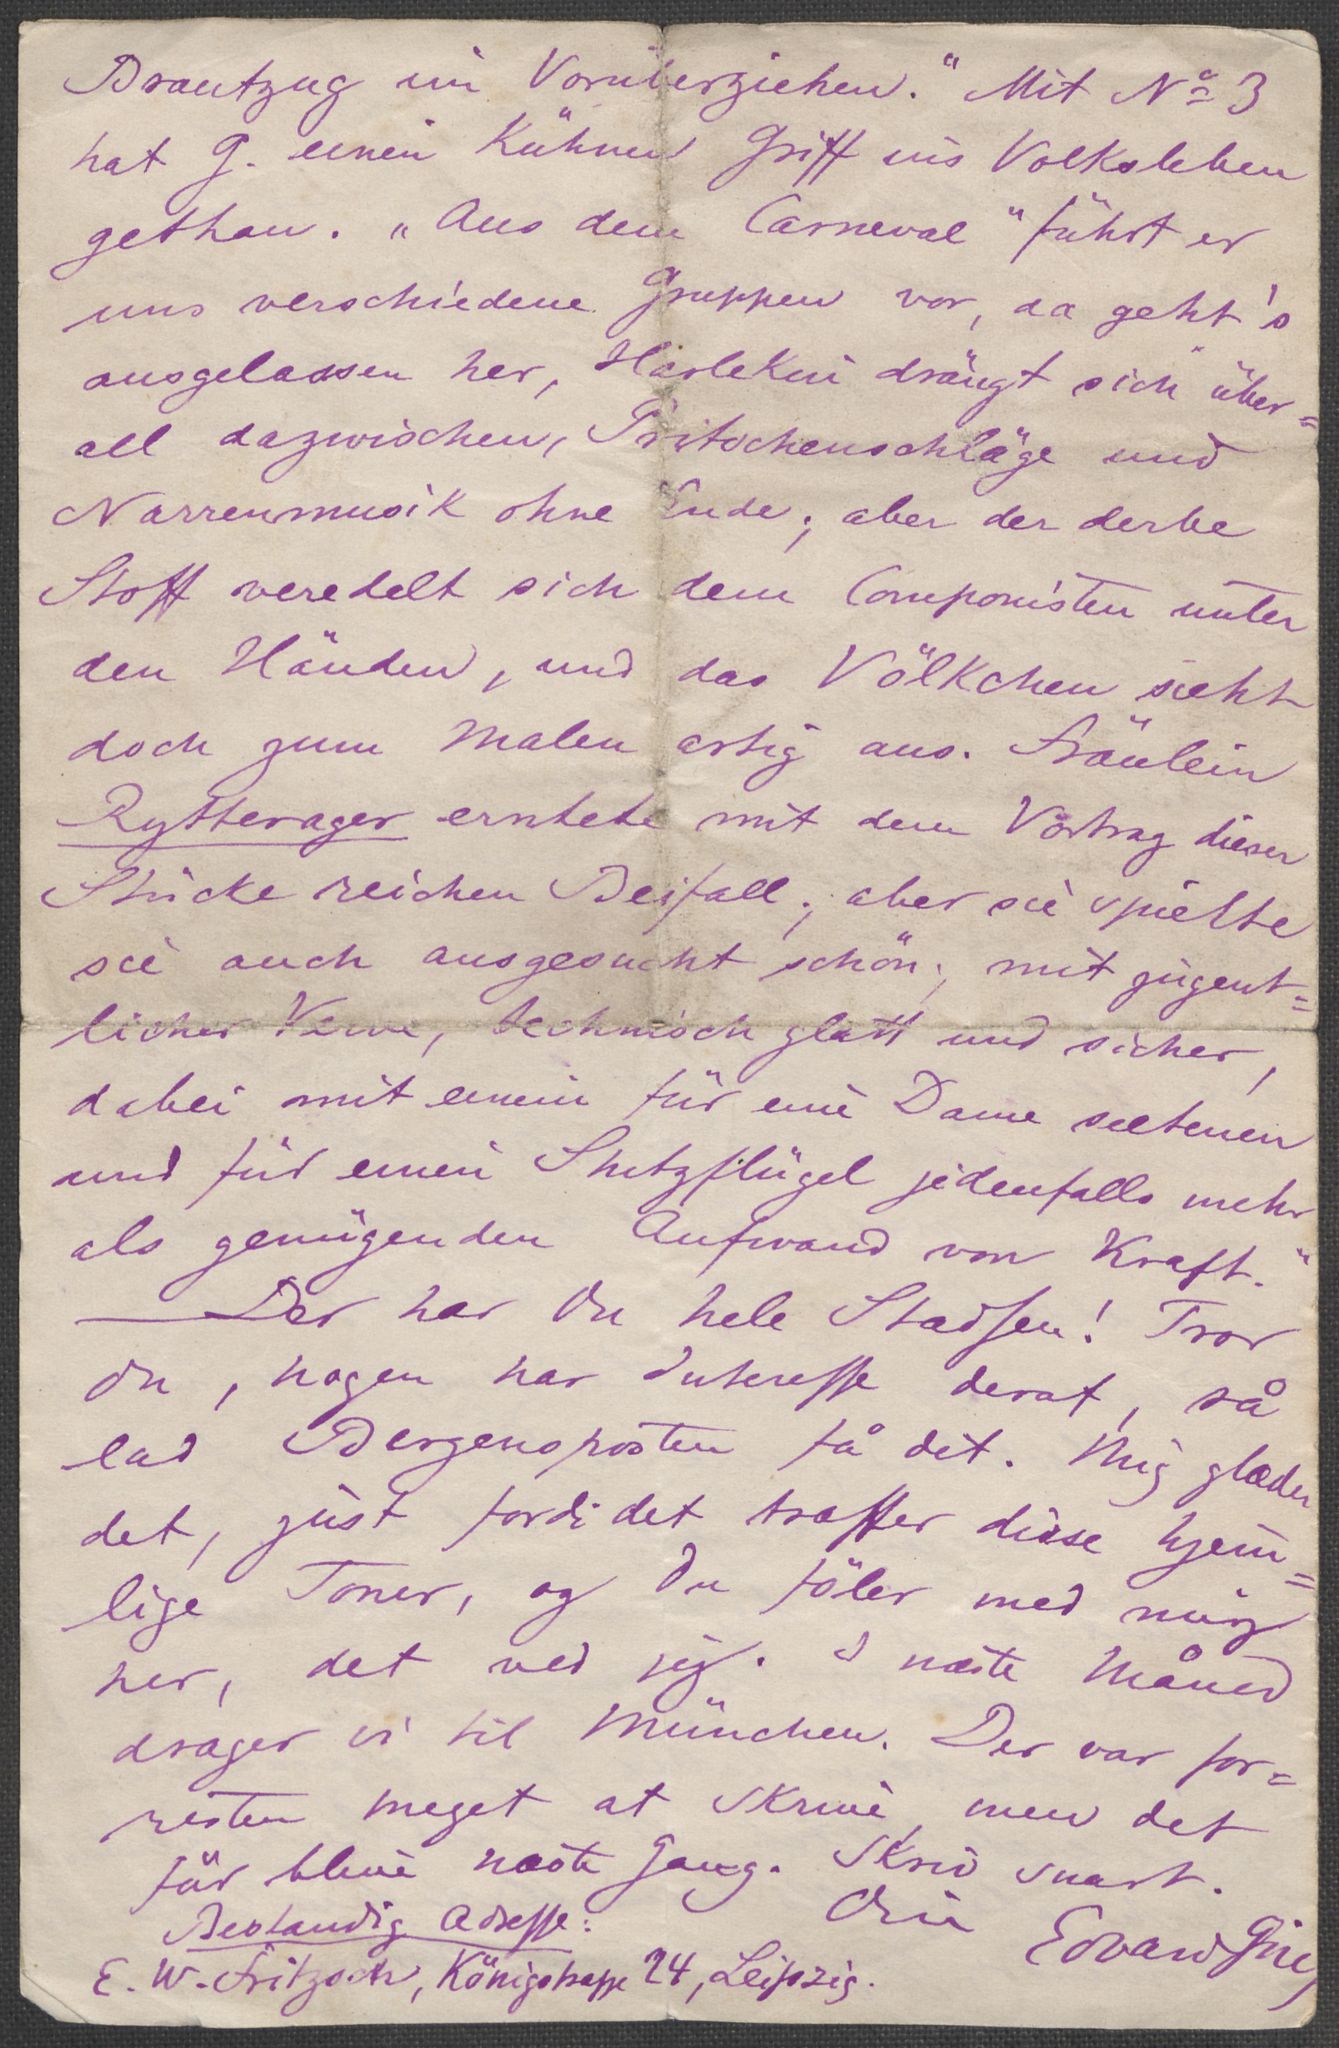 Brautzug im Vorüberziehen." Mit No 3
hat G. einen kühnen Griff ins Volksleben
gethan. „Aus dem Carneval" führt er
uns verschiedene Gruppen vor, da geht's
ausgelassen her, Harlekin drängt sich über=
all dazwischen, Pritschenschläge und
Narrenmusik ohne Ende; aber der derbe
Stoff veredelt sich dem Componisten unter
den Händen, und das Völkchen sieht
doch zum Malen artig aus. Fräulein
Rytterager erntete mit dem Vortrag dieser
Stücke reichen Beifall; aber sie spielte
sie auch ausgesucht schön; mit jugent=
licher Verve, technisch glatt und sicher,
dabei mit einem für eine Dame seltenen
und für einen Stutzflügel jedenfalls mehr
als genügenden Aufwand von Kraft."
— Der har Du hele Stadsen! Tror
Du, nogen har Interesse derat, så
lad Bergensposten få det. Mig glæder
det, just fordi det træffer disse hjem=
lige Toner, og Du föler med mig
her, det ved jeg. I næste Måned
drager vi til München. Der var for=
resten meget at skrive, men det
får blive næste Gang. Skriv snart.
Din Edvard Grieg
Bestandig Adresse:
E. W. Fritzsch, Königstrasse 24, Leipzig.